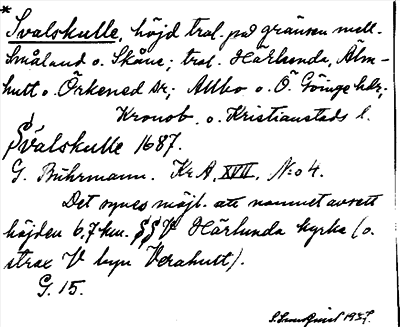 *
Svalskulle, höjd tral. på gränsen mell.
Småland o. Skåne; tral. Härlunda, Älm-
hult o. Örkened sr; Allbo o. Ö Göinge hdr;
Kronob. o. Kristianstads l.
Svalskulle 1687.
G. Buhrmann. Kr A, XVII, No 4.
Det synes möjl. att namnet avsett
höjden 6,7 km. SSV Härlunda kyrka (o.
strax V byn Verahult).
G. 15.
1937.